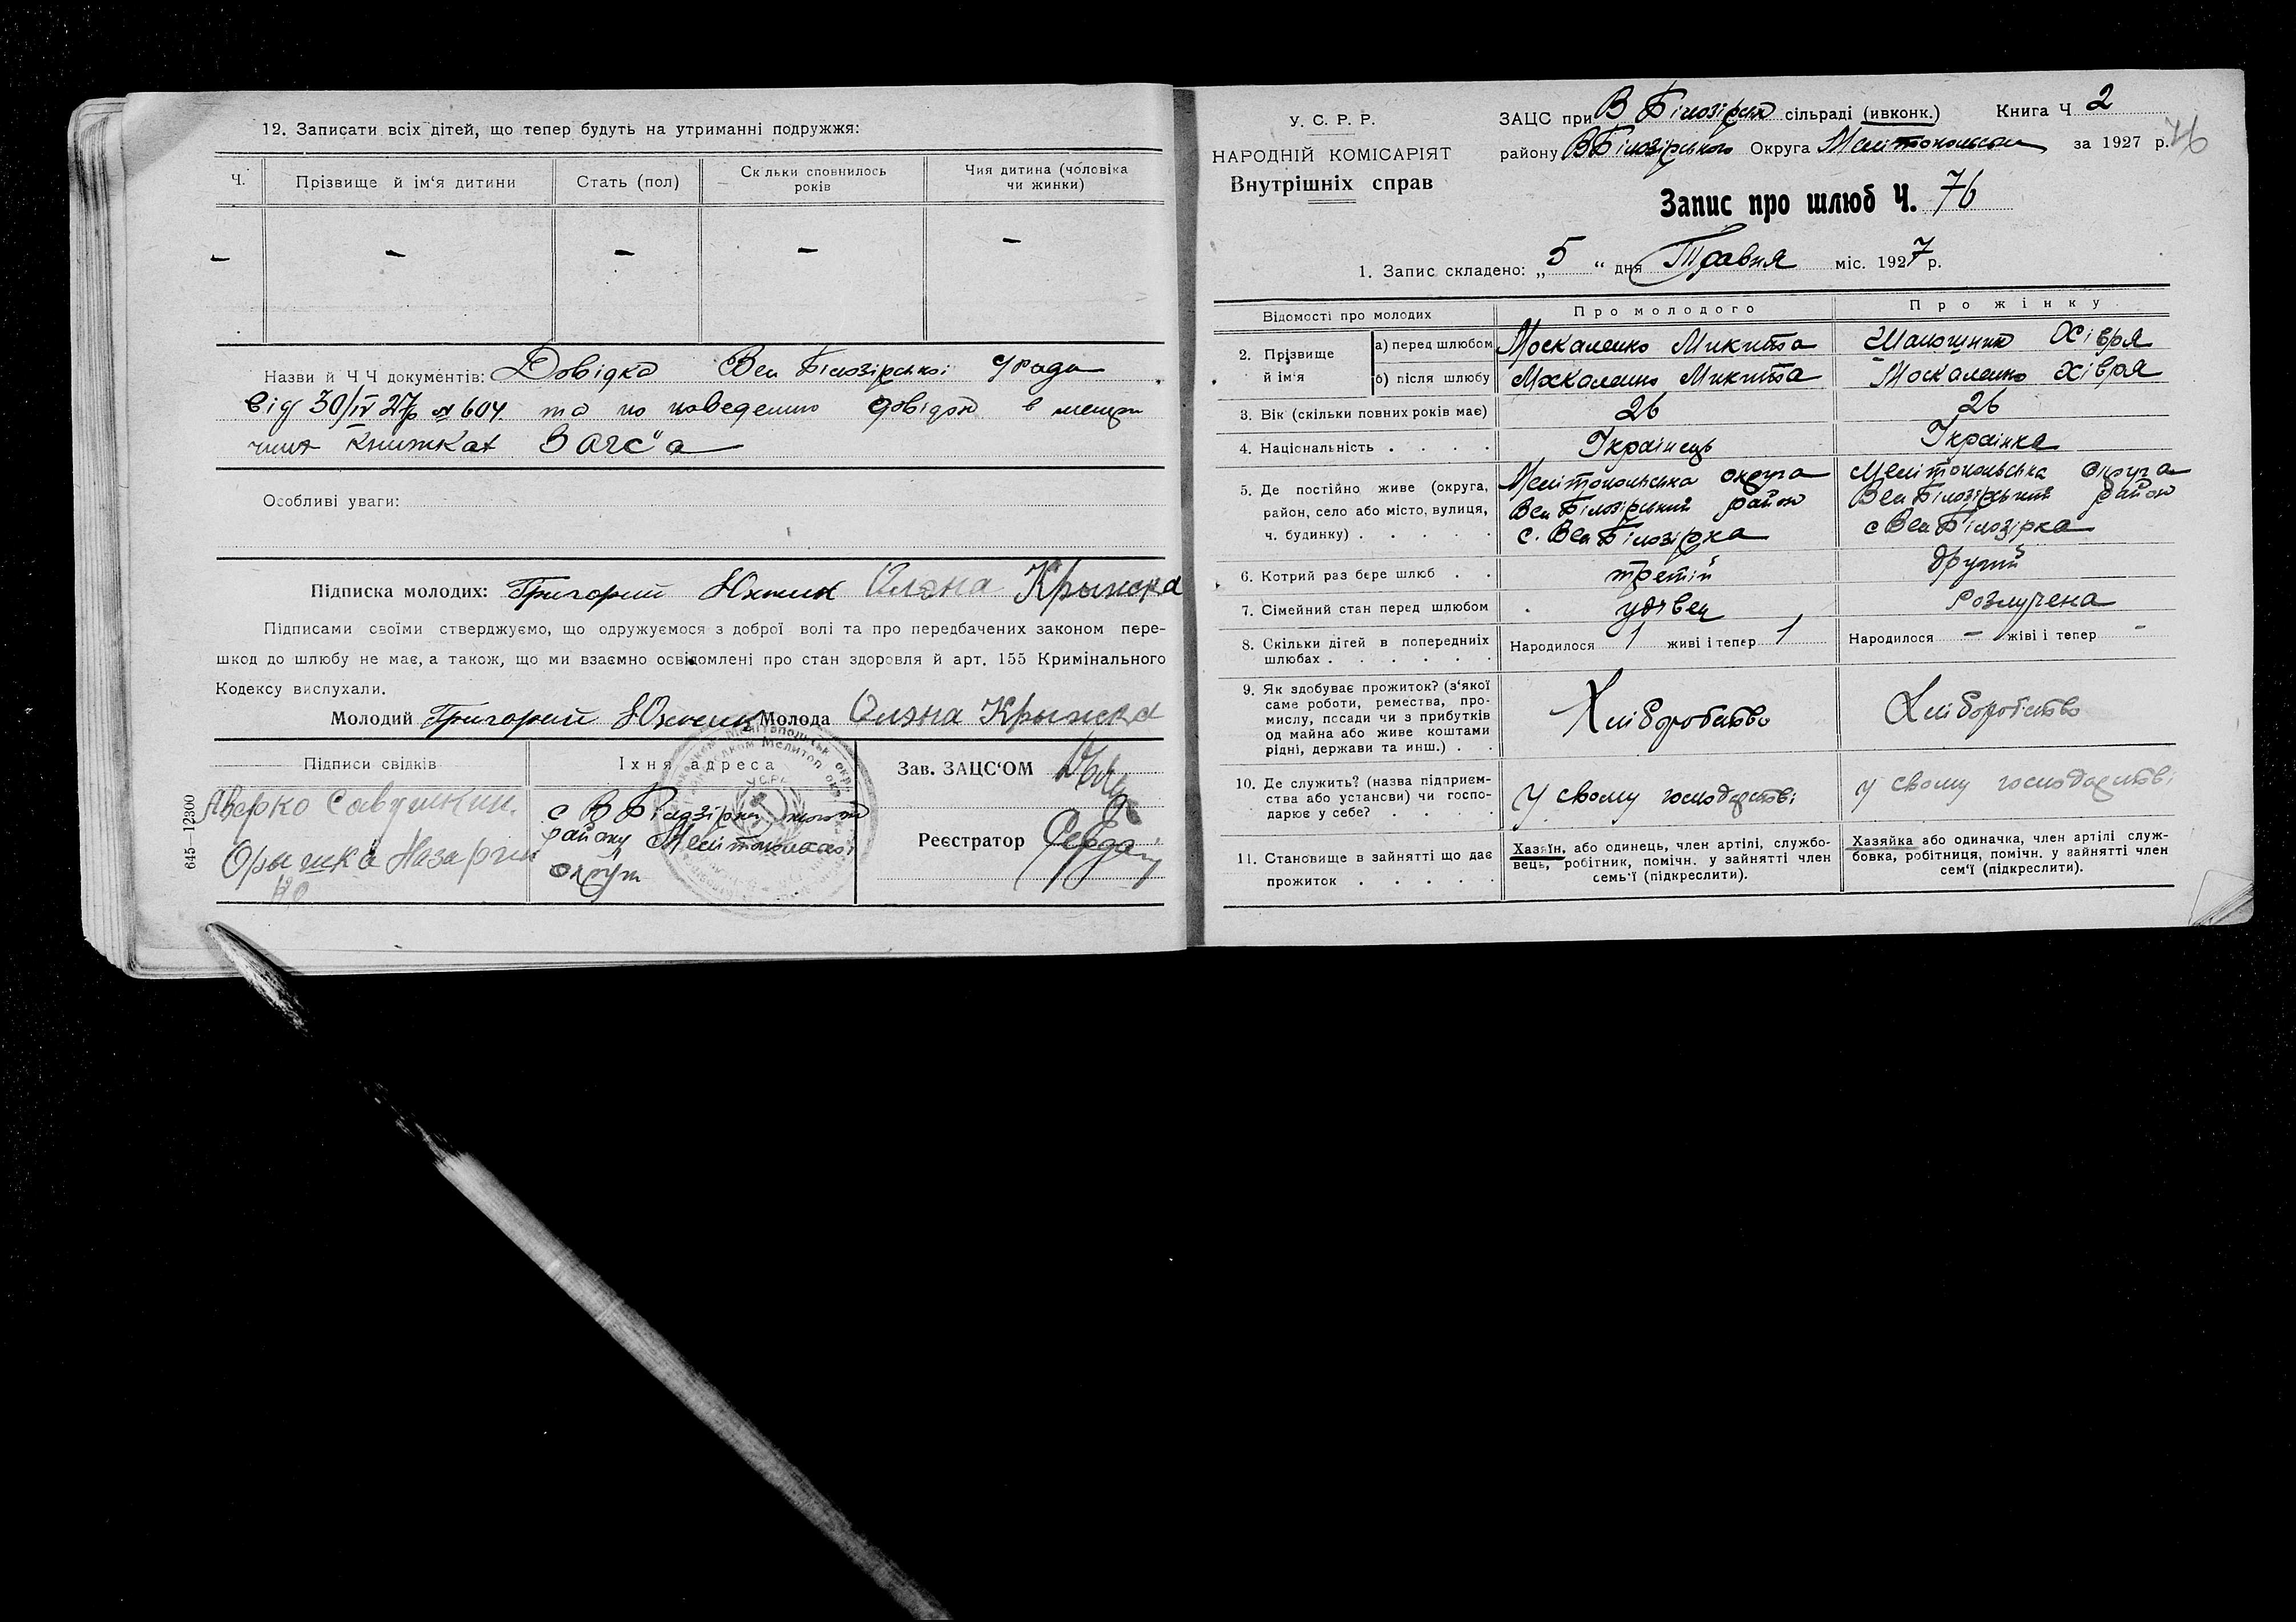 12. Записати всіх дітей, що тепер будуть на утриманні подружжя:
Ч.
Прізвище й ім'я дитини
Стать (пол)
Скільки сповнилось років
Чия дитина (чоловіка чи жинки)
— — — — —
Назви й Ч Ч документів: Довідка Вел Білозірської
від 30/IV 27р № 604 та по наведенню довідок в
книжках Загс'а
Особливі уваги:
Підписка молодих: Григорий Юхник Олэна
Підписами своїми стверджуємо, що одружуємося з доброї волі та про передбачених законом пере-
шкод до шлюбу не має, а також, що ми взаємно освідомлені про стан здоровля й арт. 155 Кримінального
Кодексу вислухали.
Молодий Григорий Юхник Молода Олэна
Підписи свідків
Їхня адреса
Зав. ЗАЦС'ОМ
Аверко
с В Білозірки
району Мелітопольської
округи
Реєстратор
645—12300
У. С. Р. Р.
НАРОДНІЙ КОМІСАРІЯТ
Внутрішніх справ
ЗАЦС при В Білозірській сільраді (ивконк.) Книга Ч 2
району ВБілозірського Округа Мелітопольська за 1927 р.
76
Запис про шлюб Ч. 76
1. Запис складено: „5“ дня Травня міс. 1927 р.
Відомості про молодих
Про молодого
Про жінку
2. Прізвище й ім'я
а) перед шлюбом Москаленко Микита Хівря
б) після шлюбу Москаленко Микита Москаленко Хівря
3. Вік (скільки повних років має) 26 26
4. Національність . . . . Українець Українка
5. Де постійно живе (округа, Мелітопольська округа Мелітопольська округа
район, село або місто, вулиця, Вел Білозірський район Вел Білозірський район
ч. будинку) . . . . . с. Вел Білозірка с Вел Білозірка
6. Котрий раз бере шлюб . . третій другий
7. Сімейний стан перед шлюбом удівец розлучена
8. Скільки дітей в попередниіх Народилося 1 живі і тепер 1 Народилося - жіві і тепер -
шлюбах . . . . . .
9. Як здобуває прожиток? (з'якої
саме роботи, ремества, про-
мислу, посади чи з прибутків Хліборобство Хліборобство
од майна або живе коштами
рідні, держави та инш.) . .
10. Де служить? (назва підприєм-
ства або установи) чи госпо- У свому господарстві у свому господарстві
дарює у себе? . . . .
11. Становище в зайнятті що дає
прожиток . . . . .
Хазяїн, або одинець, член артілі, службо-
вець, робітник, помічн. у зайнятті член
семь'ї (підкреслити).
Хазяйка або одиначка, член артілі служ-
бовка, робітниця, помічн. у зайнятті член
сем'ї (підкреслити).